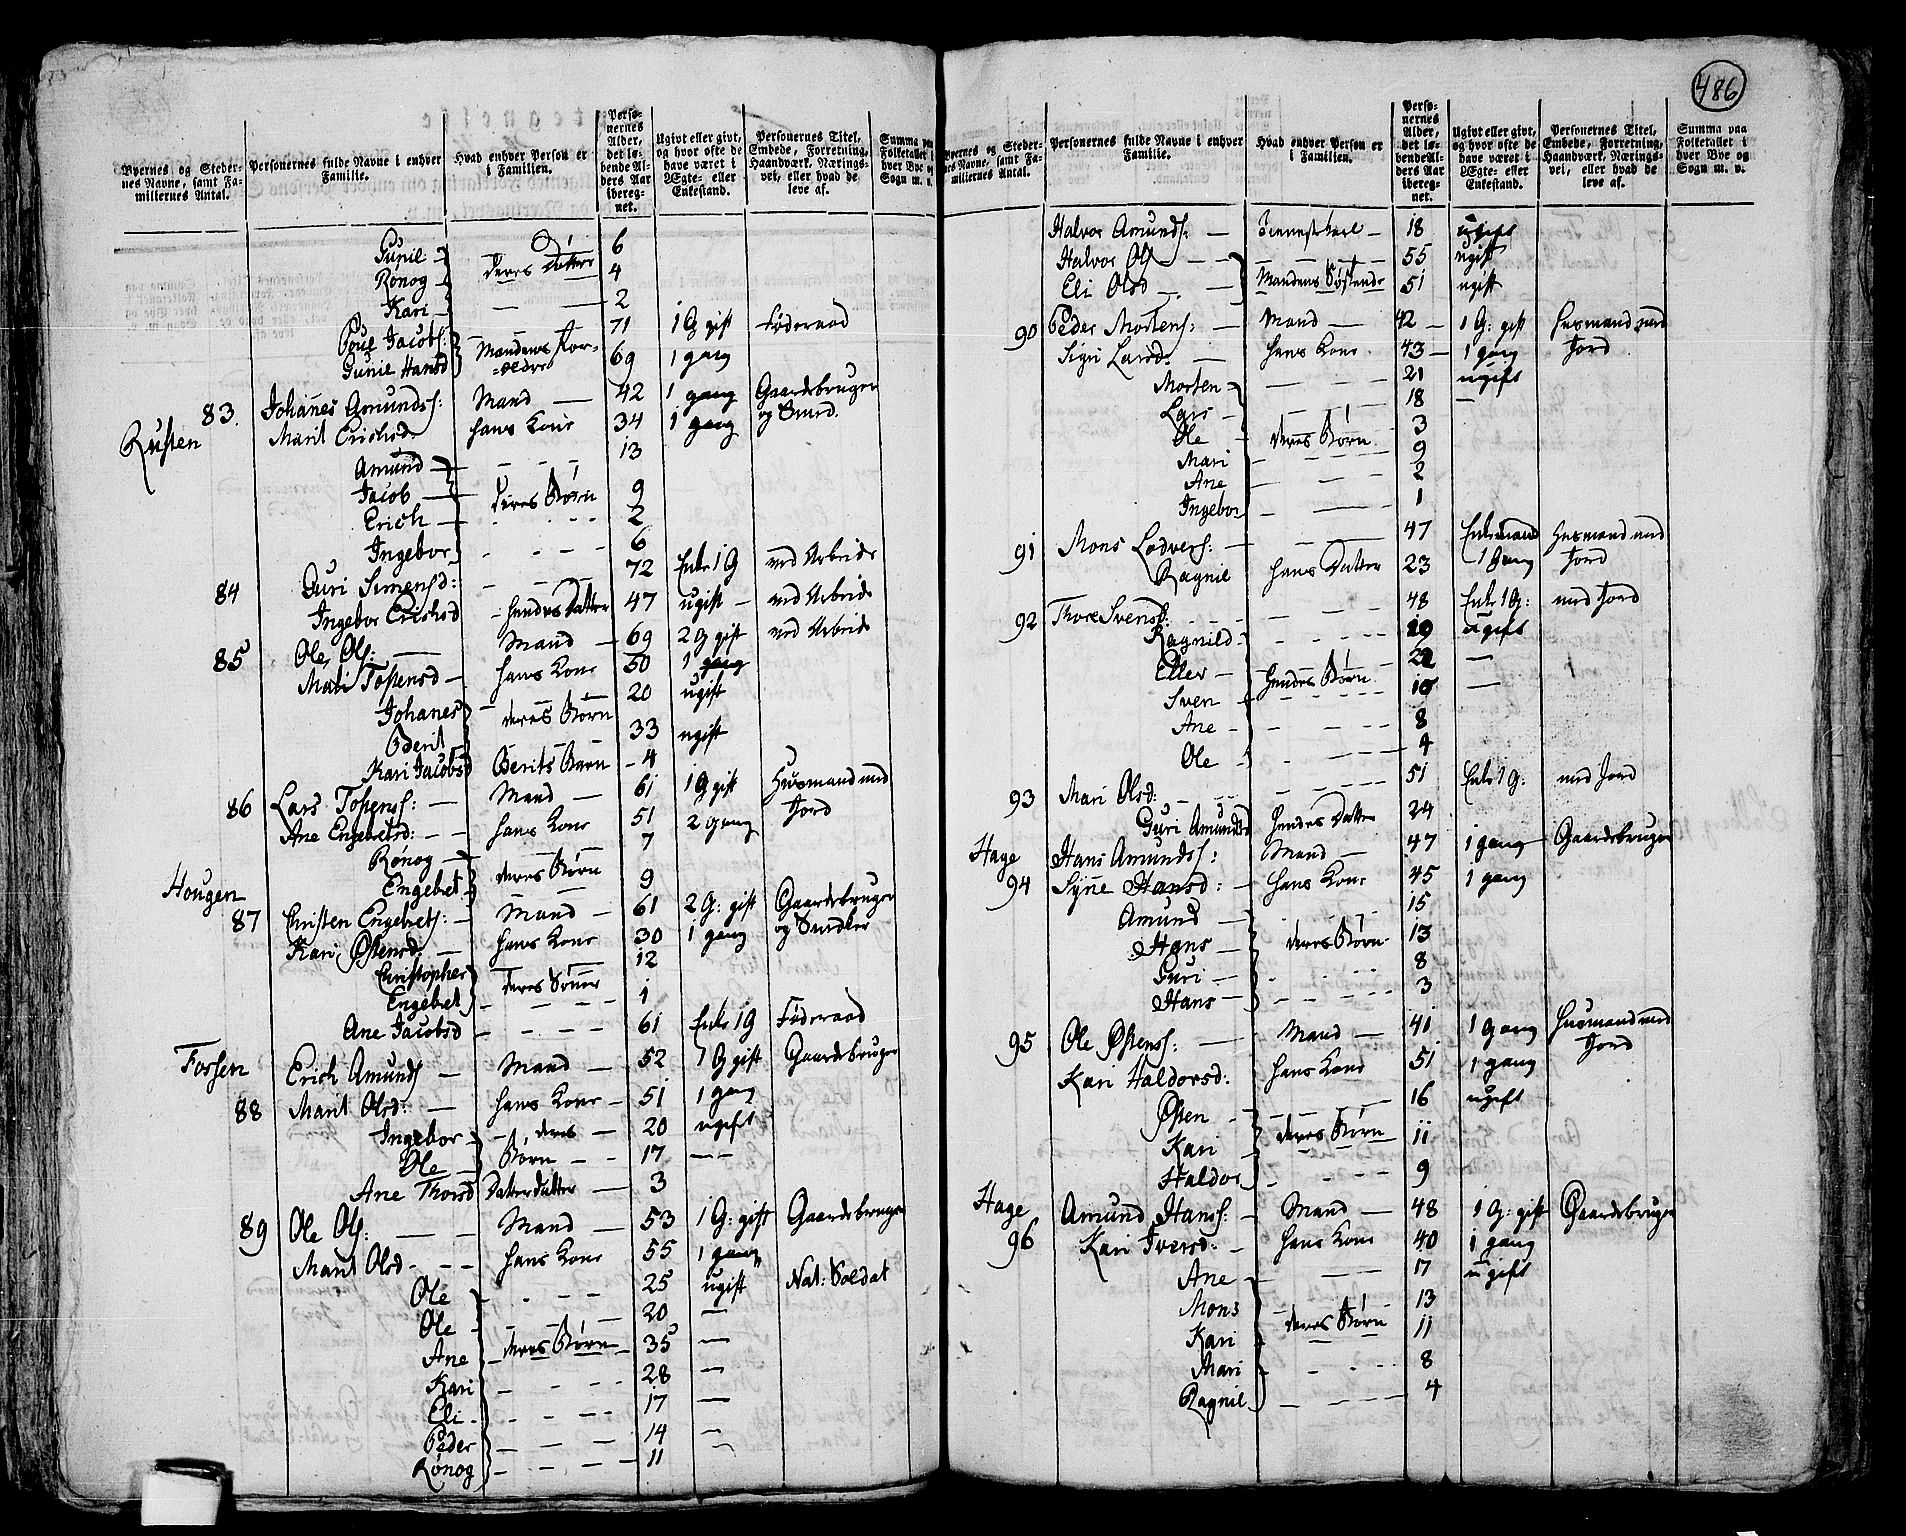 486
Byernes og Stedernes Navne, samt Familiernes Antal.
Personernes fulde Navne i enhver Familie.
Hvad enhver Person er i Familien.
Personernes Alder, det løbende Alders Aar iberegnet.
Ugivt eller givt, og hvor ofte de have været i Ægte- eller Enkestand.
Personernes Titel, Embede, Forretning, Haandværk, Næringsvei, eller hvad de leve af.
Summa paa Folketallet i hver Bye og Sogn m. v.
Gunil — 6
Rønog — deres Døttre 4
Kari — — — 2
Poul Jacobs: 71 1 G gift Føderaad
Gunil Hansd Mandens Forældre 69 1 gang
83. Johanes Amunds: Mand — 42 1 gang Gaardsbruger
Rusten Marit Erichsd: hans Kone 34 1 gang og Smed.
Amund — — — 13
Jacob — deres Børn 9
Erich — — — 2
Ingebor — — — 6
84 Guri Simensd: — — 72 Enke 1 G ved Arbeide
Ingebor Erichsd hendes Datter 47 ugift — ved Arbeide
85 Ole Ols: — Mand — 69 2 G gift ved Arbeide
Mari Tostensd — hans Kone 50 1 gang
Johanes — deres Børn 20 ugift
Berit 33 ugift
Kari Jacobsd Berits Barn — 4
86 Lars Tostens: — Mand — 61 1 G gift Huusmand med
Ane Engebretsd: — — hans Kone 51 2 gang Jord
Rønog — deres Børn 7
Engebret 9
Hougen
87 Christen Engebrets: — Mand — 61 2 G: gift Gaardsbruger
Kari Østensd — hans Kone 30 1 gang og Snedker
Christopher deres Sønner 12
Engebret — — — 1
Ane Jacobsd — — — 61 Enke 1 G Føderaad
Fossen Erich Amunds — Mand — 52 1 G gift Gaardsbruger
88 Marit Olsd: — hans Kone — 51 1 gang
Ingebor — deres — 20 ugift
Ole — Børn — — 17 —
Ane Thorsd Datterdatter — 3
89 Ole Ols: — — Mand — 53 1 G: gift Gaardsbruger
Marit Olsd — — — hans Kone 55 1 gang
Ole — — — 25 ugift Nat: Soldat
Ole — — — 20 —
Ane — deres Børn — 35 —
Kari — — — 28 —
Eli — — — 17 —
Peder — — — 14 —
Rønog — — — 11
Byernes og Stedernes Navne, samt Familiernes Antal.
Personernes fulde Navne i enhver Familie.
Hvad enhver Person er i Familien.
Personernes Alder, det løbende Alders Aar iberegnet.
Ugivt eller givt, og hvor ofte de have været i Ægte- eller Enkestand.
Personernes Titel, Embede, Forretning, Haandværk, Næringsvei, eller hvad de leve af.
Summa paa Folketallet i hver Bye og Sogn m. v.
Halvor Amunds: — Tienestkarl — 18 ugift
Halvor Ols — — — 55 ugift
Eli Olsd — Mandens Søskende 51 ugift
90 Peder Mortens: — Mand — 42 — 1 G: gift Husmand med
Sigri Larsd: — hans Kone 43 — 1 gang Jord
Morten — — — 21 ugift
Lars — — — 18 —
Ole — deres Børn 3
Mari — — — 9
Ane — — — 2
Ingebor — — — 1
91 Mons Lodvers: — — 47 Enkemand Husmand med
Ragnil hans Datter 23 1 Gang Jord
92 Thore Svens: — — 48 Enke 1 G: med Jord
Ragnild — — — 19 ugift
Eller — 22 —
Sven — hendes Børn 10 —
Ane — — — 8
Ole — — — 4
93 Mari Olsd: — — 51 Enke 1 G: med Jord
Guri Amundsd hendes Datter 24
Hage Hans Amunds: Mand — 47 1 gang Gaardsbruger
94 Synne Hansd: — hans Kone 45 1 gang
Amund — 15
Hans — deres Børn 13
Guri — — — 8
Hans — — — 3
95 Ole Østens: — Mand — 41 1 Gang Huusmand med
Kari Haldorsd: hans Kone 51 1 gang Jord
Østen — — — 16 ugift
Kari — deres Børn 11
Haldor — — — 9
Hage Amund Hans: — Mand — 48 1 G: gift Gaardsbruger
96 Kari Iversd: — hans Kone 40 1 gang
Ane — — 17 ugift
Mons — — 13
Kari deres Børn 11
Mari — — 8
Ragnil — — — 4